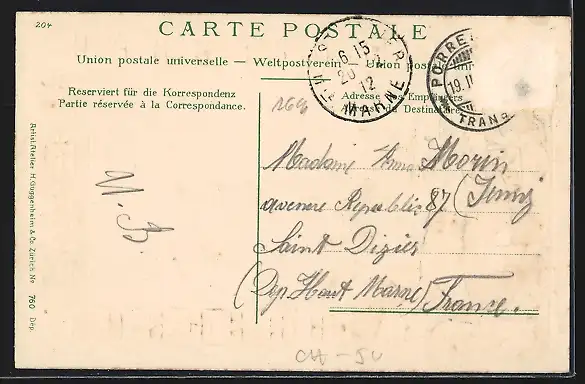 204
CARTE POSTALE
Union postale universelle — Weltpostverein — Union postale
Reserviert für die Korrespondenz
Partie réservée à la Correspondance.
Adresse des Empfängers
du Destinataire
6 15
20
12
MARNE
PORRE
19. II
TRANS
164
Madame Morin
avenue Republic 87
Saint Dizier
(Dep. Haut Marne) France.
N. B.
Artist. Atelier H. Guggenheim & Co. Zürich No 760 Dep.
CH - SU